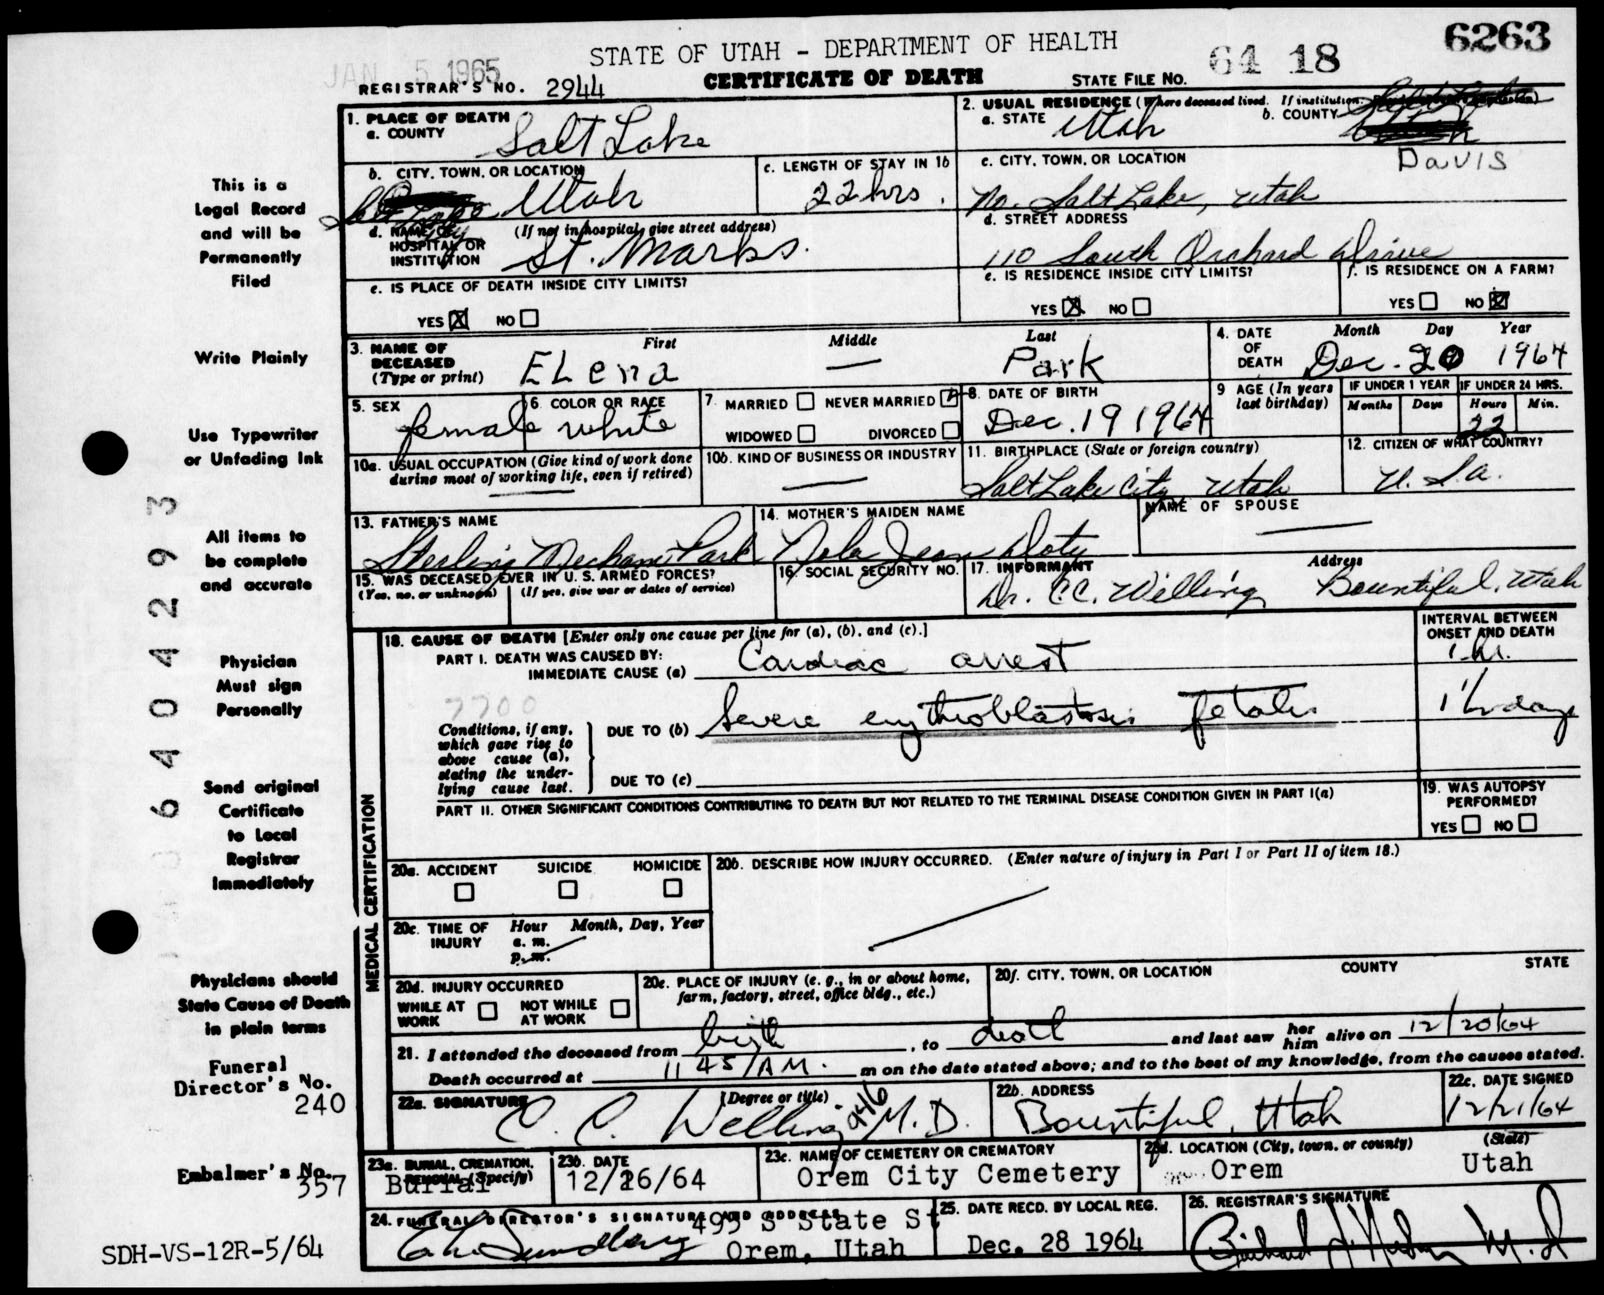 6263
STATE OF UTAH - DEPARTMENT OF HEALTH
JAN 5 1965
CERTIFICATE OF DEATH
STATE FILE NO. 64 18
REGISTRAR'S NO. 2944
1. PLACE OF DEATH
a. COUNTY Salt Lake
2. USUAL RESIDENCE (Where deceased lived. If institution:
a. STATE Utah
b. COUNTY
Davis
b. CITY, TOWN, OR LOCATION
Utah
c. LENGTH OF STAY IN 1b
22 hrs.
c. CITY, TOWN, OR LOCATION
No. Salt Lake, Utah
d. NAME OF HOSPITAL OR INSTITUTION (If not in hospital, give street address)
St. Marks.
d. STREET ADDRESS
110 South Orchard Drive
e. IS PLACE OF DEATH INSIDE CITY LIMITS?
YES X NO
e. IS RESIDENCE INSIDE CITY LIMITS?
YES X NO
f. IS RESIDENCE ON A FARM?
YES NO X
3. NAME OF DECEASED (Type or print)
First Middle Last
ELena — Park
4. DATE OF DEATH
Month Day Year
Dec. 20 1964
5. SEX
female
6. COLOR OR RACE
white
7. MARRIED NEVER MARRIED
WIDOWED DIVORCED
8. DATE OF BIRTH
Dec. 19 1964
9 AGE (In years last birthday)
IF UNDER 1 YEAR IF UNDER 24 HRS.
Months Days Hours Min.
22
10a. USUAL OCCUPATION (Give kind of work done during most of working life, even if retired)
10b. KIND OF BUSINESS OR INDUSTRY
11. BIRTHPLACE (State or foreign country)
Salt Lake City, Utah
12. CITIZEN OF WHAT COUNTRY?
U. S. a.
13. FATHER'S NAME
Sterling Mecham Park
14. MOTHER'S MAIDEN NAME
Nola Jean Doty
NAME OF SPOUSE
15. WAS DECEASED EVER IN U. S. ARMED FORCES?
(Yes, no, or unknown) (If yes, give war or dates of service)
16. SOCIAL SECURITY NO.
17. INFORMANT Address
Dr. C.C. Welling, Bountiful, Utah
18. CAUSE OF DEATH [Enter only one cause per line for (a), (b), and (c).]
INTERVAL BETWEEN ONSET AND DEATH
PART I. DEATH WAS CAUSED BY:
IMMEDIATE CAUSE (a) Cardiac arrest
1 hr.
7700
Conditions, if any, which gave rise to above cause (a), stating the underlying cause last.
DUE TO (b) Severe erythroblastosis fetalis
1 1/2 days
DUE TO (c)
PART II. OTHER SIGNIFICANT CONDITIONS CONTRIBUTING TO DEATH BUT NOT RELATED TO THE TERMINAL DISEASE CONDITION GIVEN IN PART I(a)
19. WAS AUTOPSY PERFORMED?
YES NO
MEDICAL CERTIFICATION
20a. ACCIDENT SUICIDE HOMICIDE
20b. DESCRIBE HOW INJURY OCCURRED. (Enter nature of injury in Part I or Part II of item 18.)
20c. TIME OF INJURY Hour Month, Day, Year
a. m.
p. m.
20d. INJURY OCCURRED
WHILE AT WORK NOT WHILE AT WORK
20e. PLACE OF INJURY (e. g., in or about home, farm, factory, street, office bldg., etc.)
20f. CITY, TOWN, OR LOCATION COUNTY STATE
21. I attended the deceased from birth, to death and last saw her him alive on 12/20/64
Death occurred at 11 45/AM. m on the date stated above; and to the best of my knowledge, from the causes stated.
22a. SIGNATURE (Degree or title)
C. C. Welling M.D.
22b. ADDRESS
Bountiful, Utah
22c. DATE SIGNED
12/21/64
23a. BURIAL, CREMATION, REMOVAL (Specify)
Burial
23b. DATE
12/26/64
23c. NAME OF CEMETERY OR CREMATORY
Orem City Cemetery
23d. LOCATION (City, town, or county) (State)
Orem Utah
24. FUNERAL DIRECTOR'S SIGNATURE AND ADDRESS
495 S State St
Orem, Utah
25. DATE RECD. BY LOCAL REG.
Dec. 28 1964
26. REGISTRAR'S SIGNATURE
This is a
Legal Record
and will be
Permanently
Filed
Write Plainly
Use Typewriter
or Unfading Ink
All items to
be complete
and accurate
Physician
Must sign
Personally
Send original
Certificate
to Local
Registrar
Immediately
Physicians should
State Cause of Death
in plain terms
Funeral
Director's No.
240
Embalmer's No.
357
SDH-VS-12R-5/64
6404293